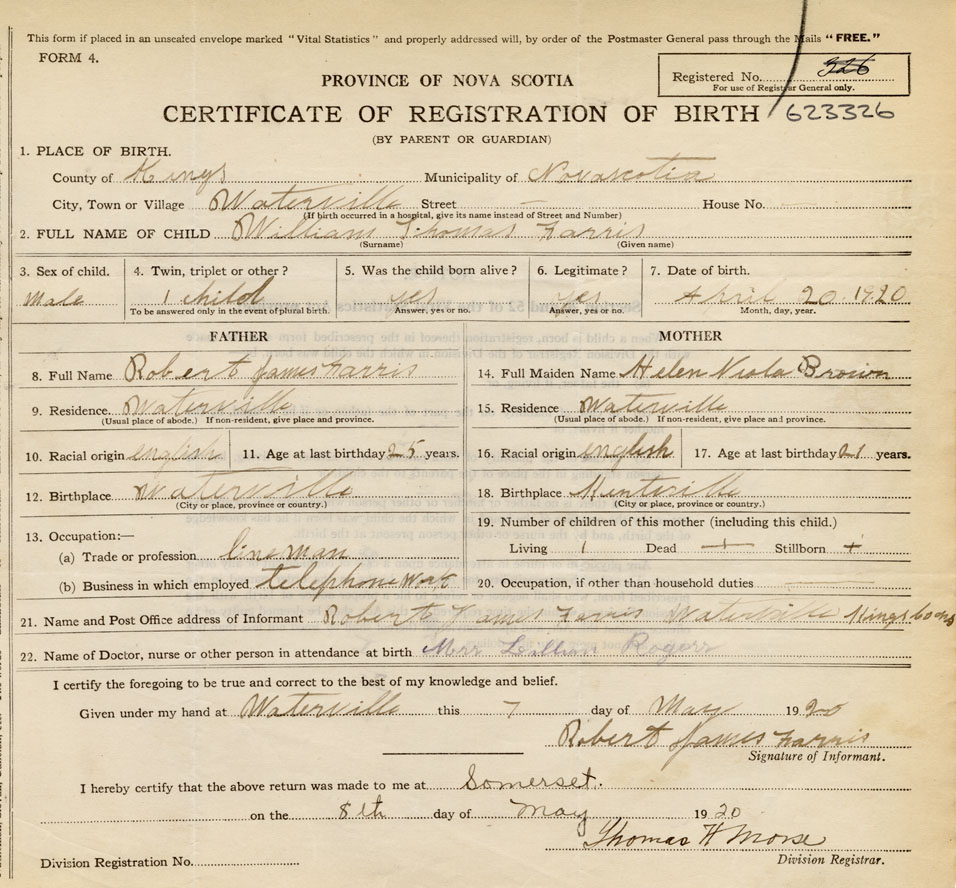 This form if placed in an unsealed envelope marked "Vital Statistics" and properly addressed will, by order of the Postmaster General pass through the Mails "FREE."
FORM 4.
PROVINCE OF NOVA SCOTIA
Registered No. 326
For use of Registrar General only.
CERTIFICATE OF REGISTRATION OF BIRTH 623326
(BY PARENT OR GUARDIAN)
1. PLACE OF BIRTH.
County of Kings Municipality of Novascotia
City, Town or Village Waterville Street — House No. —
(If birth occurred in a hospital, give its name instead of Street and Number)
2. FULL NAME OF CHILD William Thomas Farris
(Surname) (Given name)
3. Sex of child. 4. Twin, triplet or other? 5. Was the child born alive? 6. Legitimate? 7. Date of birth.
Male 1 child yes yes April 20 1920
To be answered only in the event of plural birth. Answer, yes or no. Answer, yes or no. Month, day, year.
FATHER MOTHER
8. Full Name Robert James Farris 14. Full Maiden Name Helen Viola Brown
9. Residence. Waterville 15. Residence Waterville
(Usual place of abode.) If non-resident, give place and province. (Usual place of abode.) If non-resident, give place and province.
10. Racial origin english 11. Age at last birthday 25 years. 16. Racial origin english 17. Age at last birthday 21 years.
12. Birthplace Waterville 18. Birthplace Kentville
(City or place, province or country.) (City or place, province or country.)
13. Occupation:— 19. Number of children of this mother (including this child.)
(a) Trade or profession line man Living 1 Dead + Stillborn +
(b) Business in which employed telephone work 20. Occupation, if other than household duties —
21. Name and Post Office address of Informant Robert James Farris Waterville Kings
22. Name of Doctor, nurse or other person in attendance at birth Mrs Rogers
I certify the foregoing to be true and correct to the best of my knowledge and belief.
Given under my hand at Waterville this 7 day of May 1920
Robert James Farris
Signature of Informant.
I hereby certify that the above return was made to me at Somerset.
on the 8th day of May 1920
Thomas H Morse
Division Registration No. Division Registrar.